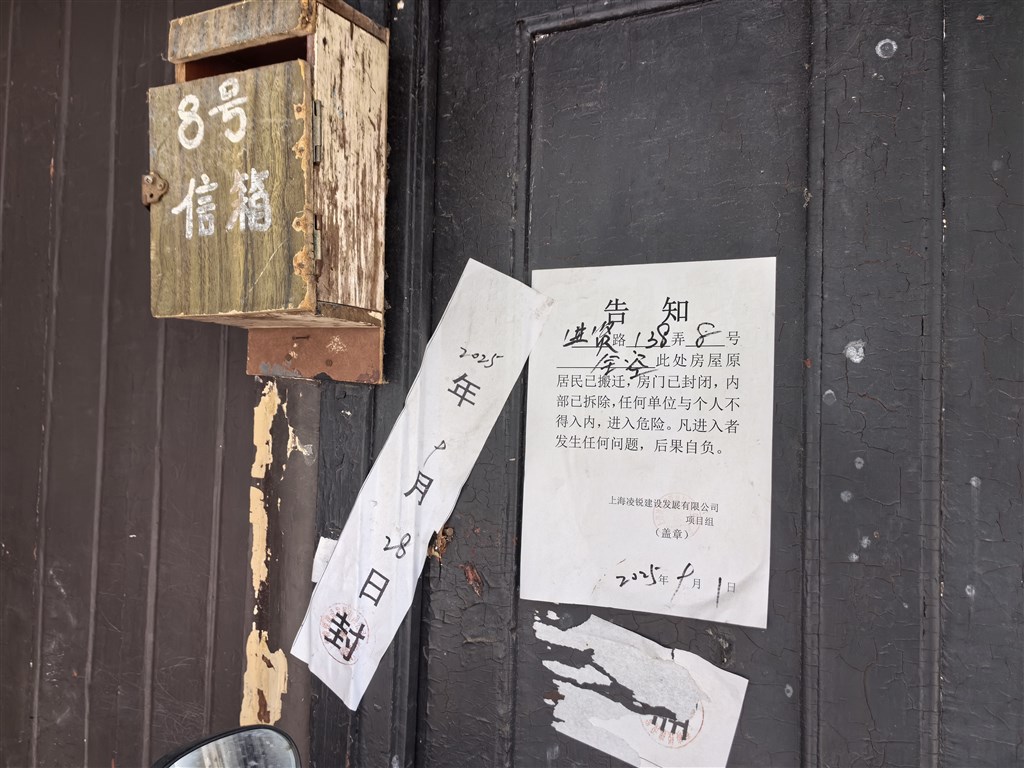 8号
信箱
2025
年
9
月
28
日
封
告 知
进贤路138弄8号
全姿 此处房屋原
居民已搬迁，房门已封闭，内
部已拆除，任何单位与个人不
得入内，进入危险。凡进入者
发生任何问题，后果自负。
上海凌锐建设发展有限公司
项目组
（盖章）
2025年9月1日